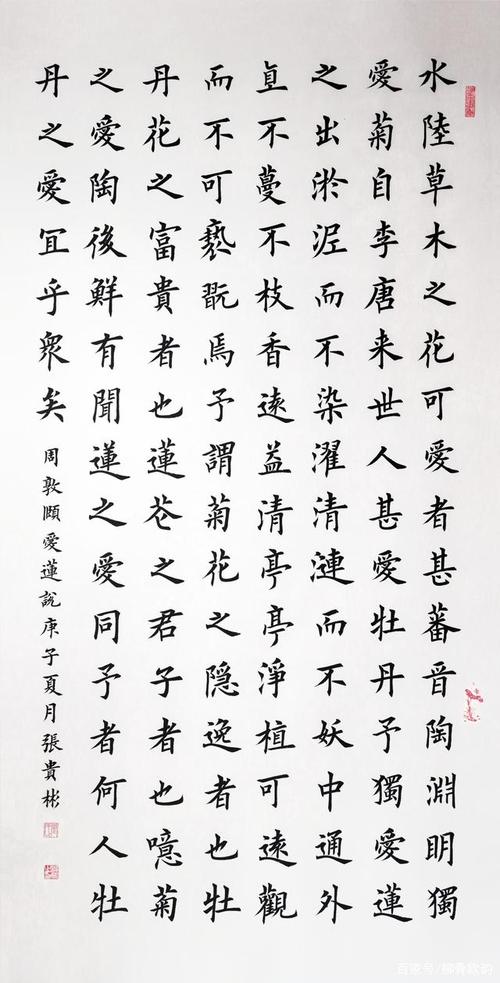 水陸草木之花可愛者甚蕃晋陶淵明獨
愛菊自李唐来世人甚愛牡丹予獨愛蓮
之出淤泥而不染濯清漣而不妖中通外
直不蔓不枝香遠益清亭亭淨植可遠觀
而不可褻翫焉予謂菊花之隠逸者也牡
丹花之富貴者也蓮花之君子者也噫菊
之愛陶後鮮有聞蓮之愛同予者何人牡
丹之愛宜乎衆矣
周敦頤愛蓮説庚子夏月張貴彬
百家号/柳骨欧韵